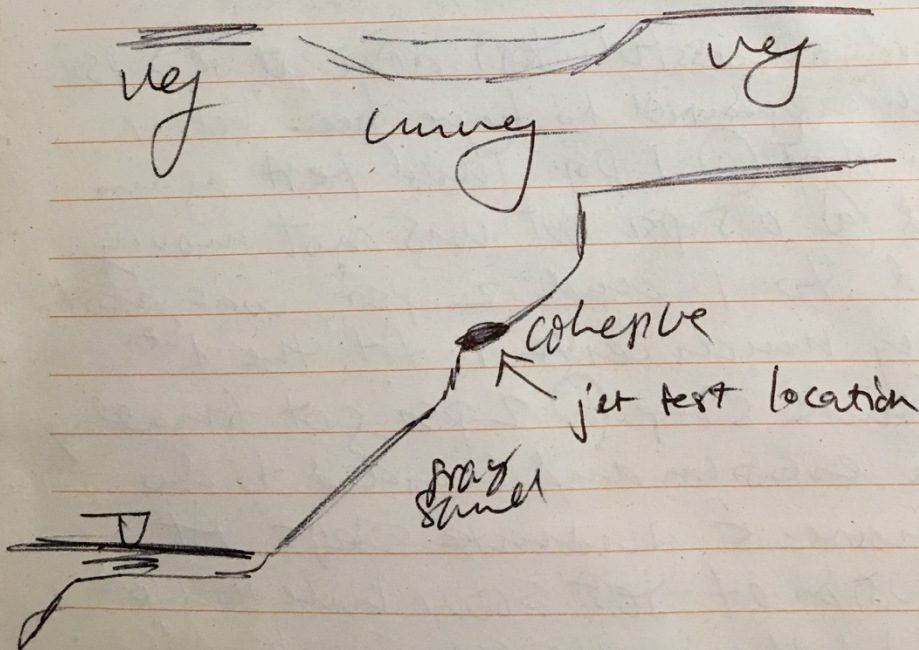 veg
veg
cohesive
jet test location
gray
sand